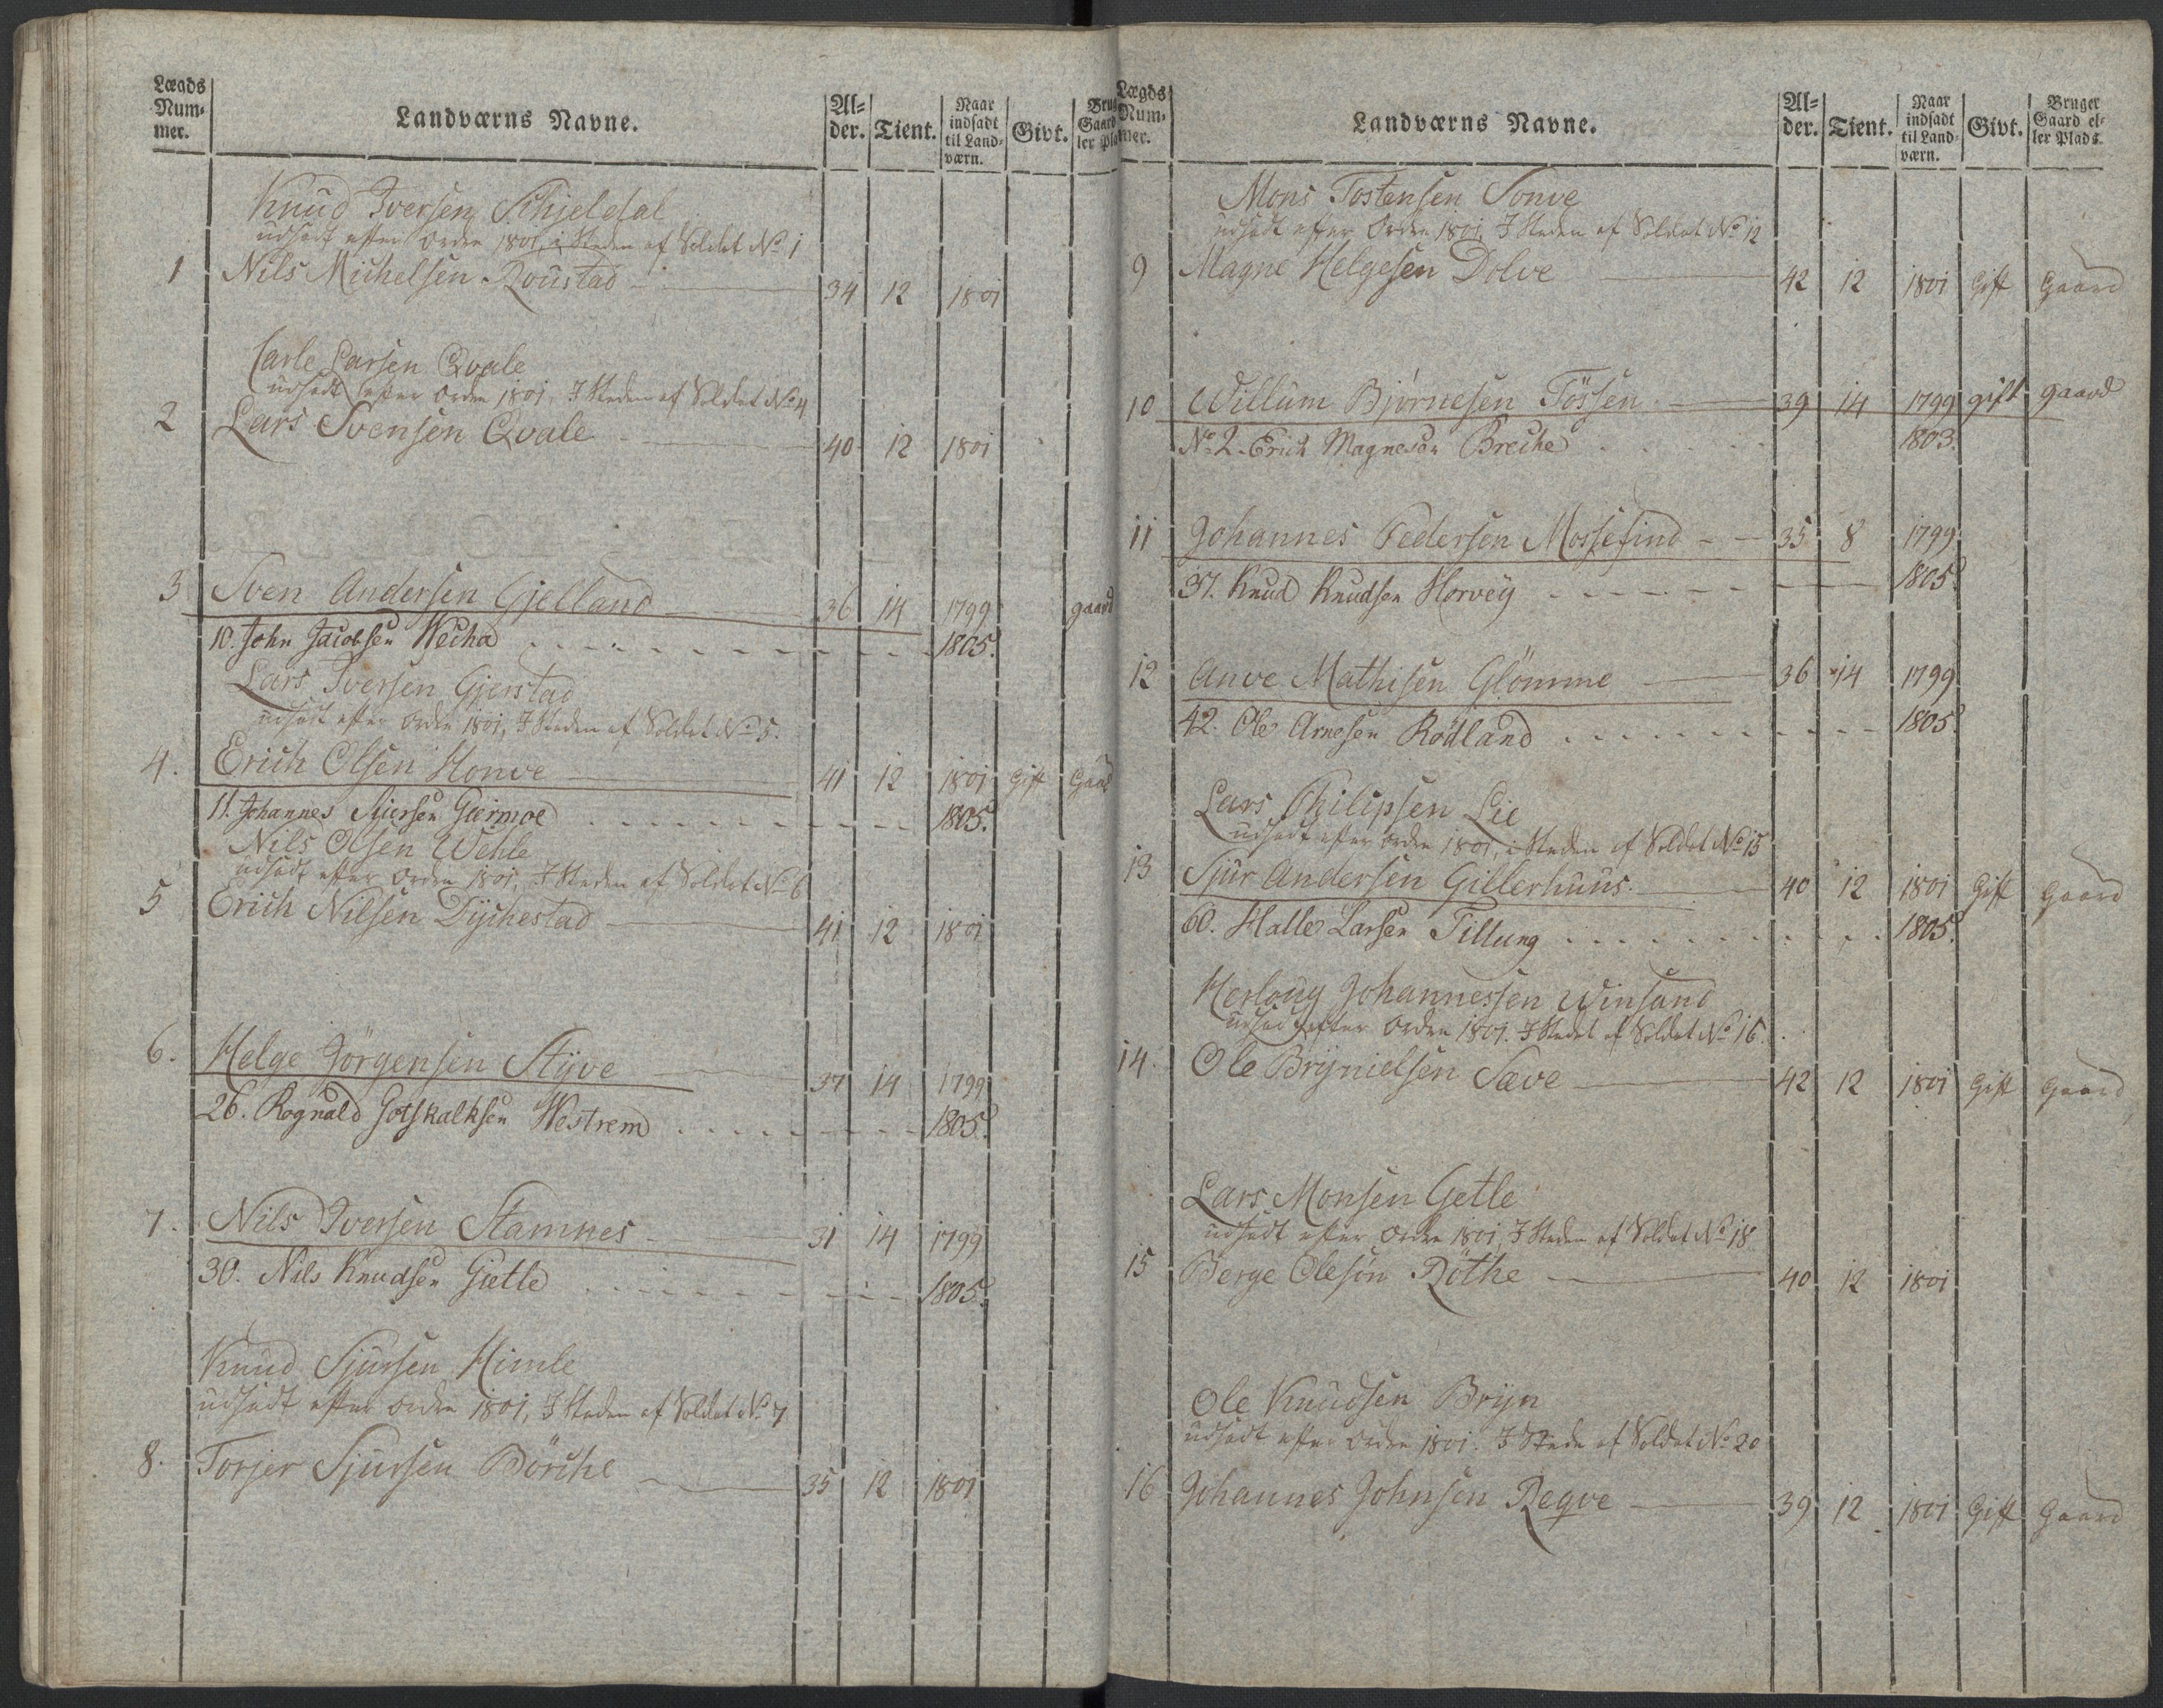 Lægds Num- mer. Landværns Navne. Al- der. Tient. Naar indsadt til Land- værn. Givt. Brug Gaard ler Pla
Knud Iversen Schjeldal
udsadt efter Ordre 1801, i Steden af Soldat No 1
1 Nils Michelsen Roustad 34 12 1801
Carle Larsen Qvale
udsadt efter Ordre 1801, I Steden af Soldat No 4
2 Lars Svensen Qvale 40 12 1801
3 Sven Andersen Gjelland 36 14 1799 gaard
10. John Jacobsen Wecha 1805.
Lars Iversen Gjerstad
udsadt efter Ordre 1801, I Steden af Soldat No 5.
4. Erich Olsen Honve 41 12 1801 Gift Gaard
11. Johannes Siursen Geirmoe 1805.
Nils Olsen Wehle
udsadt efter Ordre 1801, I Steden af Soldat No 6
5 Erich Nilsen Dÿchestad 41 12 1801
6. Helge Jörgensen Stÿve 37 14 1799
26. Rognald Gotskalksen Westrem 1805.
7. Nils Iversen Stamnes 31 14 1799
30. Nils Knudsen Gietle 1805.
Knud Sjursen Himle
udsadt efter Ordre 1801, I Steden af Soldat No 7
8. Torjer Sjursen Börche 35 12 1801
Lægds Num- mer. Landværns Navne. Al- der. Tient. Naar indsadt til Land- værn. Givt. Bruger Gaard el- ler Plads.
Mons Tostensen Tonve
udsadt efter Ordre 1801, I Steden af Soldat No 12
9 Magne Helgesen Dolve 42 12 1801 Gift Gaard
10 Willum Bjørnesen Tössen 39 14 1799 gift gaard
No 2. Erich Magnesen Breche 1803.
11 Johannes Pedersen Mossefind 35 8 1799
37. Knud Knudsen Horveÿ 1805.
12 Anve Mathisen Glömme 36 14 1799
42. Ole Arnesen Rödland 1805.
Lars Philipsen Lie
udsadt efter Ordre 1801, i Steden af Soldat No 15
13 Sjur Andersen Gillerhuus. 40 12 1801 Gift Gaard
60. Halle Larsen Tillung 1805.
Herloug Johannessen Winsand
udsadt efter Ordre 1801. I Stedet af Soldat No 16.
14. Ole Brÿnielsen Sæve 42 12 1801 Gift Gaard
Lars Monsen Getle
udsadt efter Ordre 1801, I Steden af Soldat No 18
15 Berge Olesön Röthe 40 12 1801
Ole Knudsen Brÿn
udsadt efter Ordre 1801. I Stede af Soldat No 20
16 Johannes Johnsen Reqve 39 12 1801 Gift Gaard